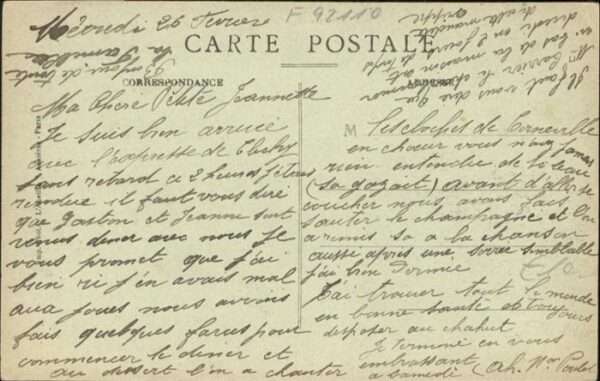 Mécredi 26 Fevrier
F 92110
CARTE POSTALE
CORRESPONDANCE
Ma Chere Petite Jeannette
Je suis bien arrivée
avec l'expresse de Clichy
sans retard ca 2 heures j'étais
rendue il faut vous dire
que Gaston et Jeanne sont
venus diner avec nous Je
vous promet que j'ai
bien ri j'en avais mal
aux joues nous avons
fais quelques farces pour
commencer le diner et
au dessert l'on a chanter
M Les cloches de Corneville
en choeur vous n'avez jamais
rien entendue de si beau
avant d'aller se
coucher nous avons fais
sauter le champagne et l'on
a remis sa a la chanson
aussi après une soirée semblable
j'ai bien Dormie
J'ai trouver tout le monde
en bonne santé et toujours
disposer au chahut
Je termine en vous
embrassant
a Samedi
Il faut vous dire que
de la maison est